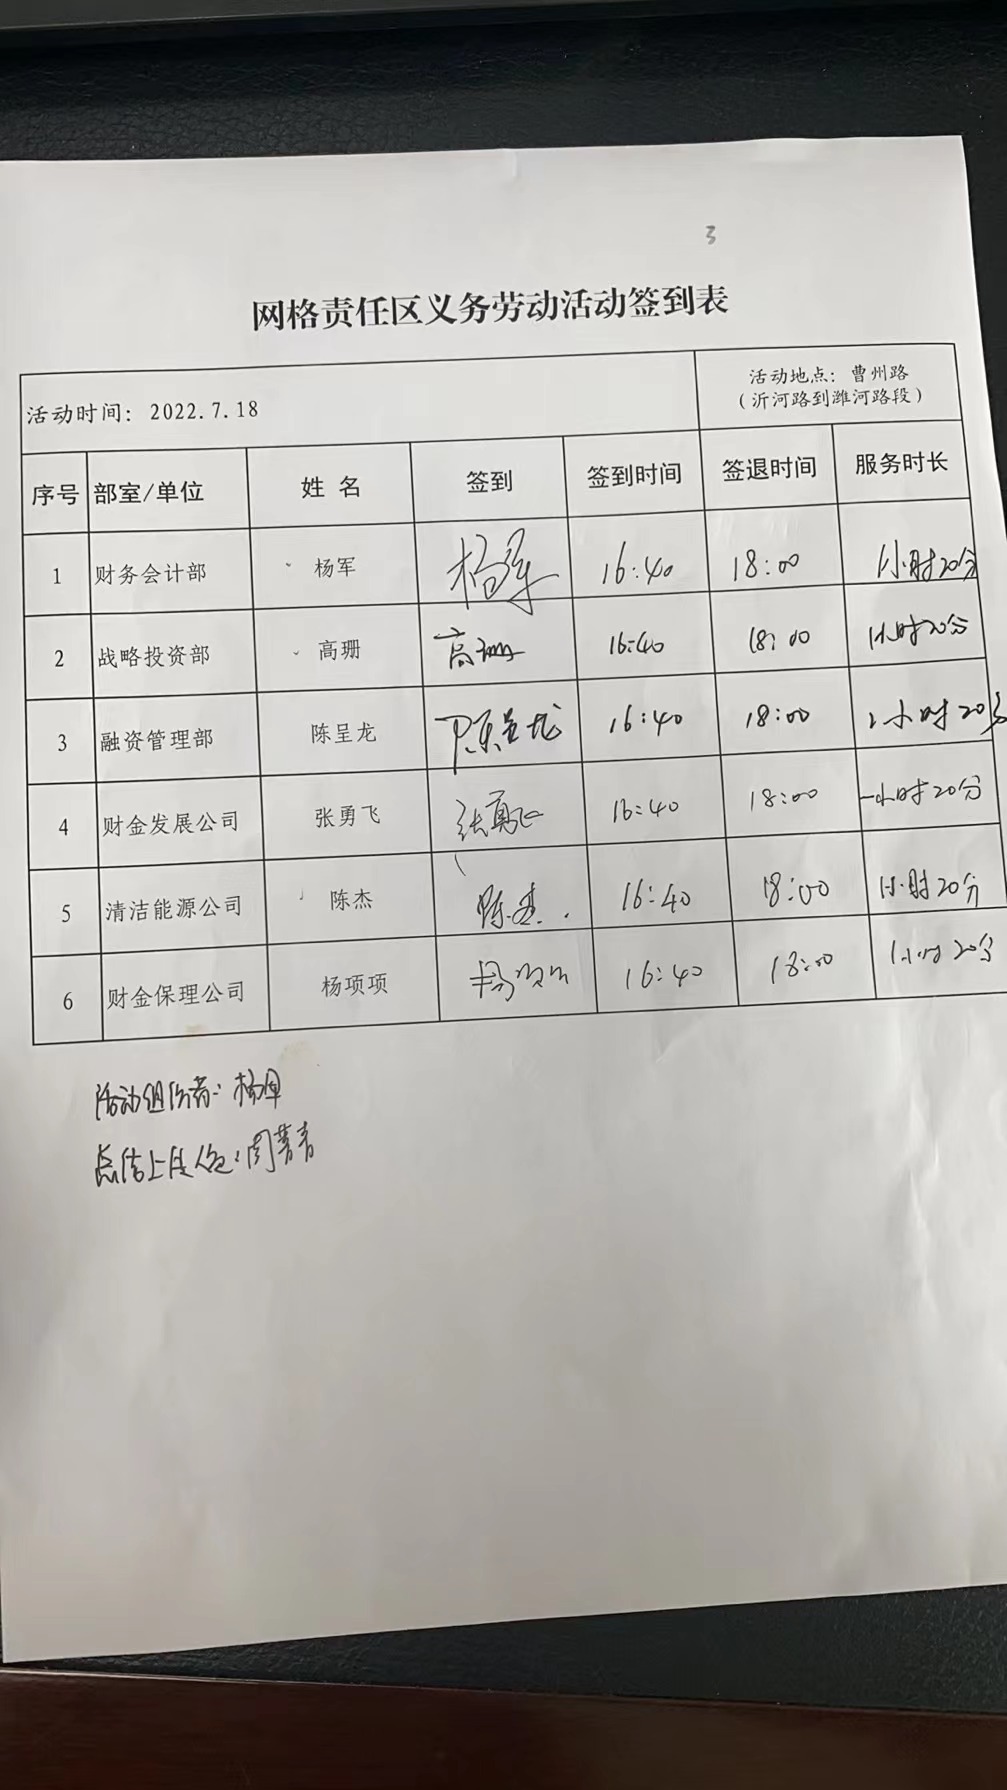 3
网格责任区义务劳动活动签到表
活动时间：2022.7.18
活动地点：曹州路
（沂河路到潍河路段）
序号 部室/单位 姓 名 签到 签到时间 签退时间 服务时长
1 财务会计部 杨军 杨军 16:40 18:00 1小时20分
2 战略投资部 高珊 高珊 16:40 18:00 1小时20分
3 融资管理部 陈呈龙 陈呈龙 16:40 18:00 1小时20分
4 财金发展公司 张勇飞 张勇飞 16:40 18:00 一小时20分
5 清洁能源公司 陈杰 陈杰 16:40 18:00 1小时20分
6 财金保理公司 杨项项 杨项项 16:40 18:00 1小时20分
活动组织者：杨军
总结上传人：周菁青